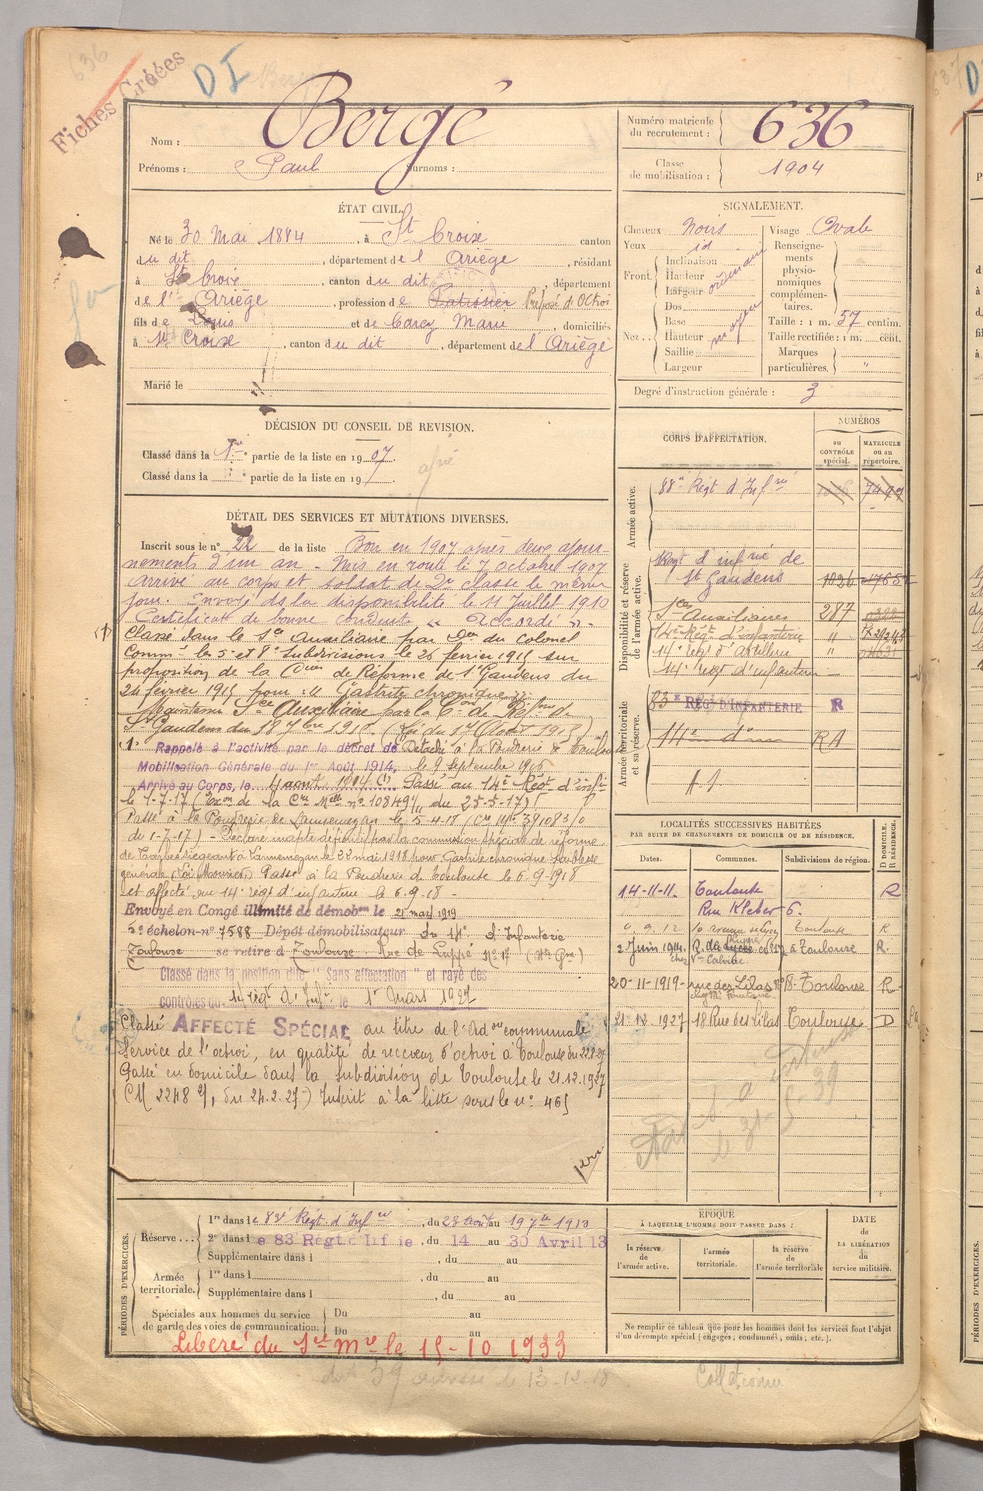 636
Fiches Créées
DI
Nom : Bergé
Prénoms : Paul Surnoms :
Numéro matricule du recrutement : 636
Classe de mobilisation : 1904
ÉTAT CIVIL.
Né le 30 Mai 1884, à St Croix canton
du dit, département de l'Ariège, résidant
à St Croix, canton du dit, département
de l'Ariège, profession de Patissier Préposé d'Octroi
fils de Louis et de Carcy Marie, domiciliés
à St Croix, canton du dit, département de l'Ariège
Marié le
SIGNALEMENT.
Cheveux Noirs Visage Ovale
Yeux id
Front. Inclinaison Hauteur Largeur ordinaire
Nez. Dos Base Hauteur Saillie Largeur moyen
Renseignements physionomiques complémentaires.
Taille : 1 m. 57 centim.
Taille rectifiée : 1 m. cent.
Marques particulières. "
Degré d'instruction générale : 3
DÉCISION DU CONSEIL DE REVISION.
Classé dans la 1re partie de la liste en 1907.
Classé dans la partie de la liste en 19
DÉTAIL DES SERVICES ET MUTATIONS DIVERSES.
Inscrit sous le n° 22 de la liste Bon en 1907 après deux ajour-
nements d'un an - Mis en route le 7 octobre 1907
arrivé au corps et soldat de 2e classe le même
jour. Envoyé ds la disponibilité le 11 Juillet 1910
Certificat de bonne conduite " Accordé ".
Classé dans le Sce Auxiliaire par Don du colonel
Commt les 5 et 8e Subdivisions le 26 février 1915 sur
proposition de la Con de Réforme de St Gaudens du
24 février 1915 pour : " Gastrite chronique "
Maintenu Sce Auxiliaire par la Con de Réfme de
St Gaudens du
Rappelé à l'activité par le décret de Détaché à la Poudrerie de Toulouse
Mobilisation Générale du 1er Août 1914. le 9 septembre 1916
Arrivé au Corps, le 4 août 1914 Passé au 14e Régt d'infie
le 1-7-17 de la Cre Mlle n° 10849 du 25-5-17)
Passé à la Poudrerie de Lannemezan le 5-4-18
du 1-7-17) - Déclaré inapte par la commission spéciale de réforme
de Tarbes siégeant à Lannemezan le 22 mai 1918 pour Gastrite chronique faiblesse
générale (Loi Mourier) Passé à la Poudrerie de Toulouse le 6-9-1918
et affecté au 14e régt d'infanterie le 6-9-18 -
Envoyé en Congé illimité de démobon le 21 mars 1919
5e échelon - n° 7588 Dépôt démobilisateur du 14e d'Infanterie
Toulouse se retire à Toulouse Rue de Luppé N° 17 (Hte Gne)
Classé dans la position dite "Sans affectation" et rayé des
contrôles du 14 régt d'Infie le 1er Mars 1927
Classé AFFECTÉ SPÉCIAL au titre de l'Adon communale
Service de l'octroi, en qualité de receveur d'octroi à Toulouse
Passé en domicile dans la subdivision de Toulouse le 21.12.1927
(CM 2248 du 24.2.27) Inscrit à la liste sous le n° 465
CORPS D'AFFECTATION.
NUMÉROS
au CONTRÔLE spécial.
MATRICULE ou au répertoire.
Armée active. 88e Régt d'Infrie 7497
Disponibilité et réserve de l'armée active. Régt d'infrie de St Gaudens 1026
Sces Auxiliaires 287
14e Régt d'infanterie "
14e régt d'artillerie "
14e régt d'infanterie
Armée territoriale et sa réserve. 83e RÉGt D'INFANTERIE R
14e d° RA
LOCALITÉS SUCCESSIVES HABITÉES
PAR SUITE DE CHANGEMENTS DE DOMICILE OU DE RÉSIDENCE.
Dates. Communes. Subdivisions de région. D DOMICILE. R RÉSIDENCE.
14-11-11. Toulouse R
Rue Kleber 6.
Toulouse R
2 Juin 1914. à Toulouse R.
20-11-1919 rue des Lilas n° 18 Toulouse R
21-12 1927 18 Rue des Lilas Toulouse D
PÉRIODES D'EXERCICES.
Réserve ... 1re dans le 83e Régt d'Infie, du 23 août au 1913
2e dans le 83 Régt d'Inf ie, du 14 au 30 Avril 13
Supplémentaire dans l , du au
Armée territoriale. 1re dans l , du au
Supplémentaire dans l , du au
Spéciales aux hommes du service de garde des voies de communication. Du au
Du au
Libéré du Sce Mre le 15-10 1933
ÉPOQUE
À LAQUELLE L'HOMME DOIT PASSER DANS :
la réserve de l'armée active.
l'armée territoriale.
la réserve de l'armée territoriale
DATE DE LA LIBÉRATION du service militaire.
Ne remplir ce tableau que pour les hommes dont les services font l'objet
d'un décompte spécial (engagés, condamnés, omis, etc.).